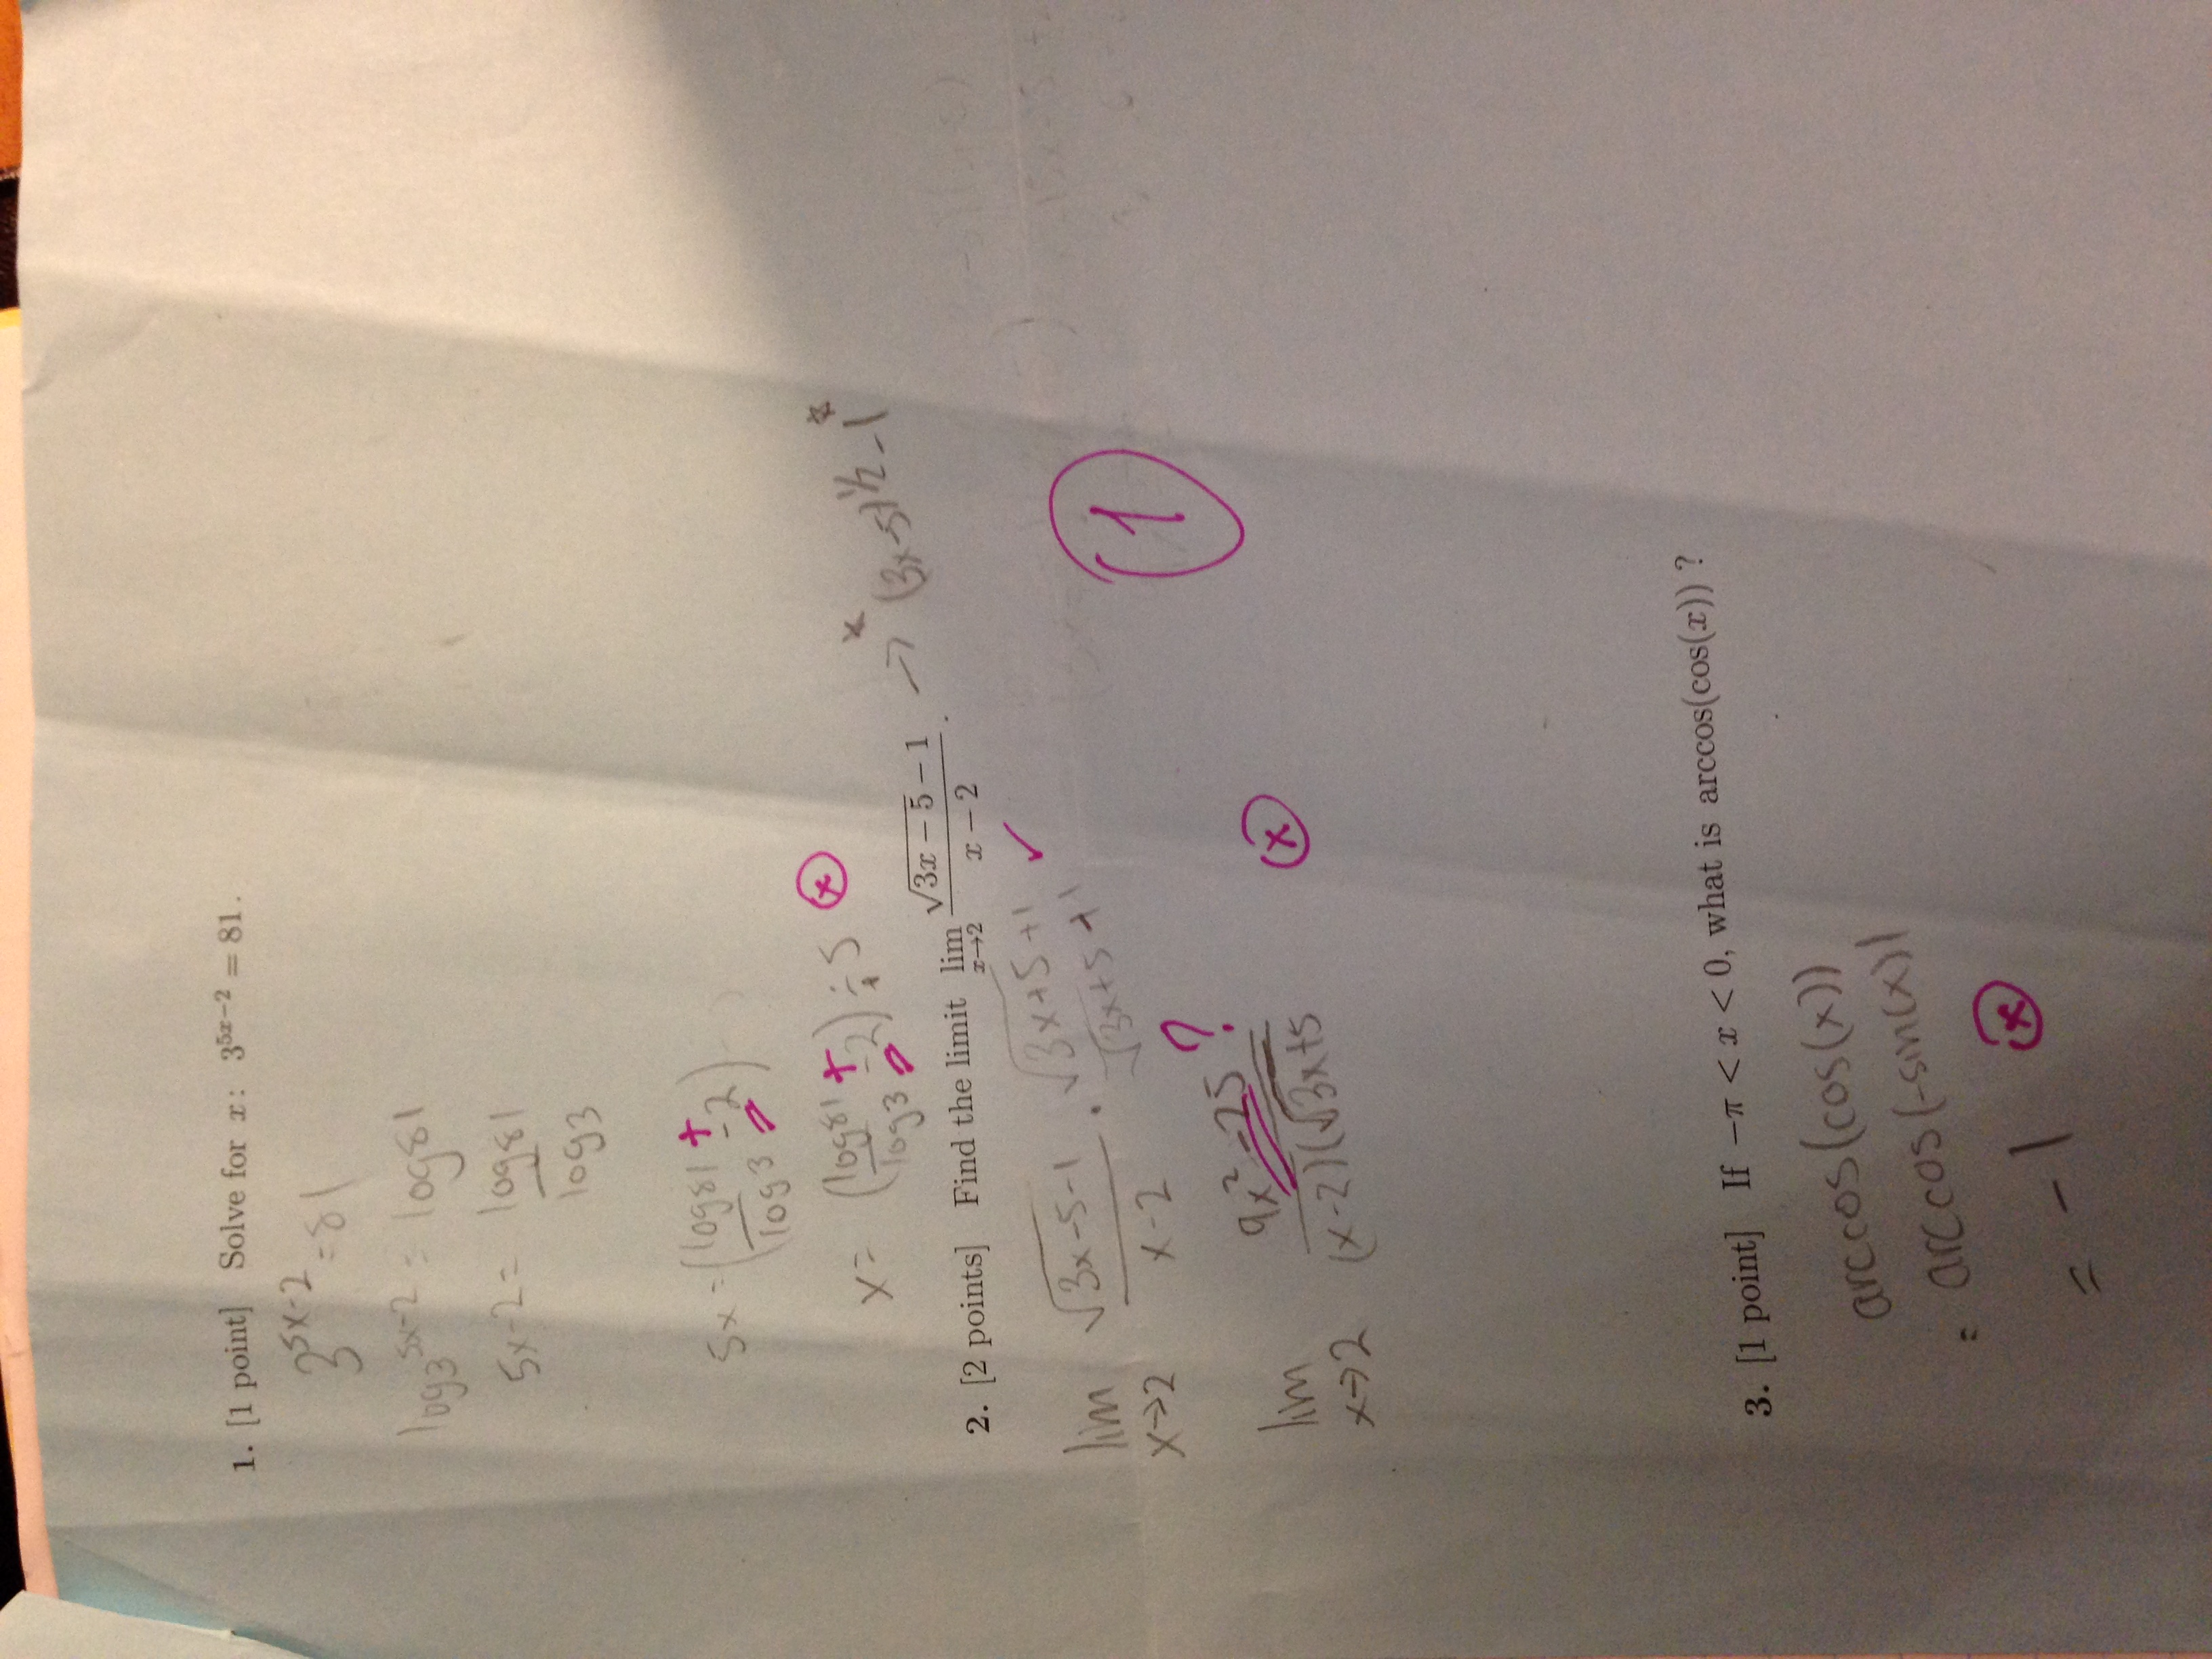 1. [1 point] Solve for x: 3^{5x-2} = 81.
3^{5x-2} = 81
log3^{5x-2} = log81
5x-2 = log81/log3
5x = (log81/log3 + -2)
x = (log81/log3 + -2) ÷ 5 x
* → (3x-5)^{1/2} -1 *
2. [2 points] Find the limit lim_{x→2} (√(3x-5) - 1)/(x - 2).
lim_{x→2} (√(3x-5) -1)/(x-2) · (√(3x+5) +1)/(√(3x+5) +1) ✓
1
lim_{x→2} (9x²-25)/((x-2)(√(3x+5)) ? x
3. [1 point] If -π < x < 0, what is arccos(cos(x)) ?
arccos(cos(x))
= arccos(-sin(x))1
= -1 x